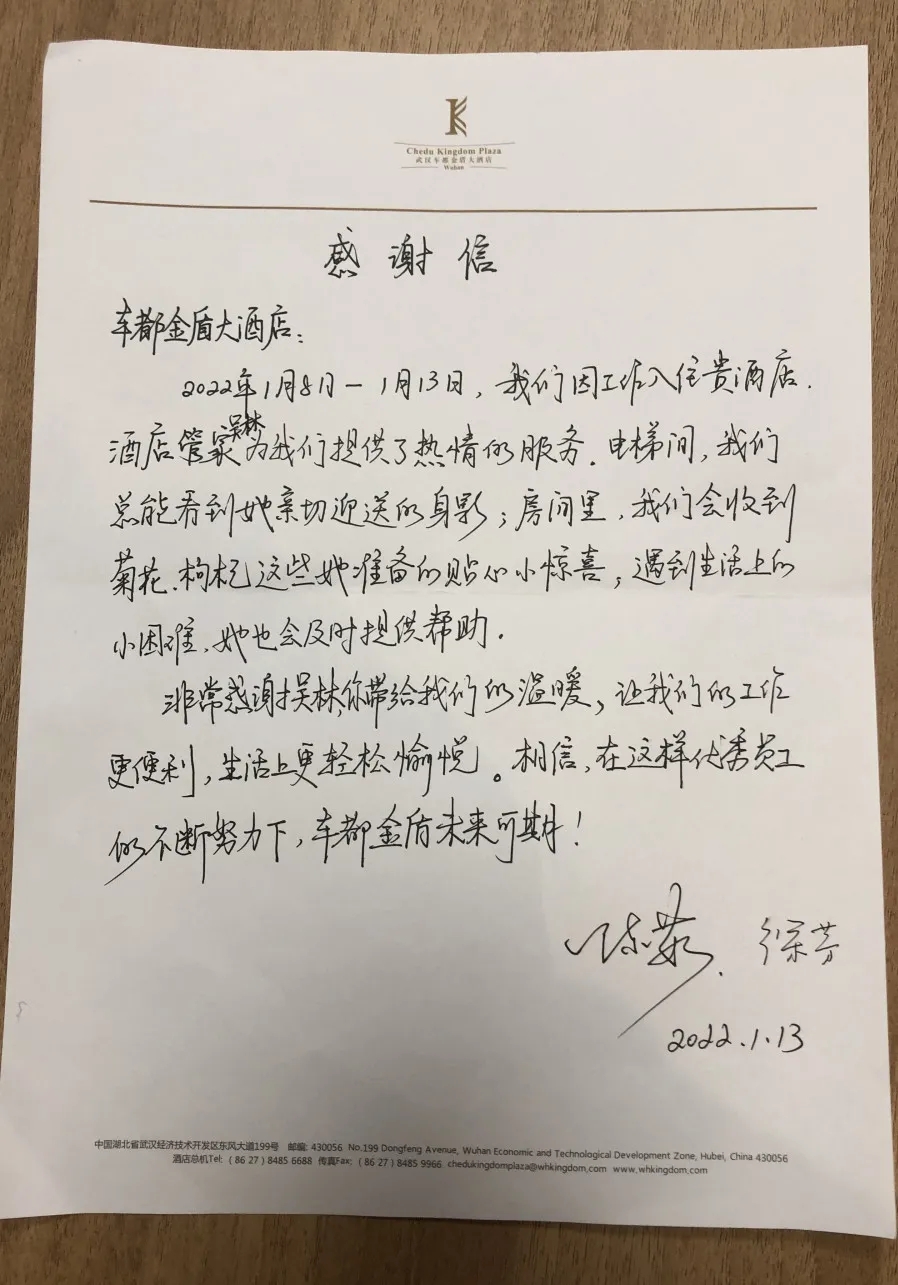 Chedu Kingdom Plaza
武汉车都金盾大酒店
Wuhan
感谢信
车都金盾大酒店:
2022年1月8日一1月13日,我们因工作入住贵酒店.
酒店管家吴林为我们提供了热情的服务.电梯间,我们
总能看到她亲切迎送的身影;房间里,我们会收到
菊花.枸杞这些她准备的贴心小惊喜,遇到生活上的
小困难,她也会及时提供帮助.
非常感谢吴林,你带给我们的温暖,让我们的工作
更便利,生活上更轻松愉悦。相信,在这样优秀员工
的不断努力下,车都金盾未来可期!
徐芳
2022.1.13
中国湖北省武汉经济技术开发区东风大道199号 邮编: 430056 No.199 Dongfeng Avenue, Wuhan Economic and Technological Development Zone, Hubei, China 430056
酒店总机Tel: (86 27) 8485 6688 传真Fax: (86 27) 8485 9966 chedukingdomplaza@whkingdom.com www.whkingdom.com